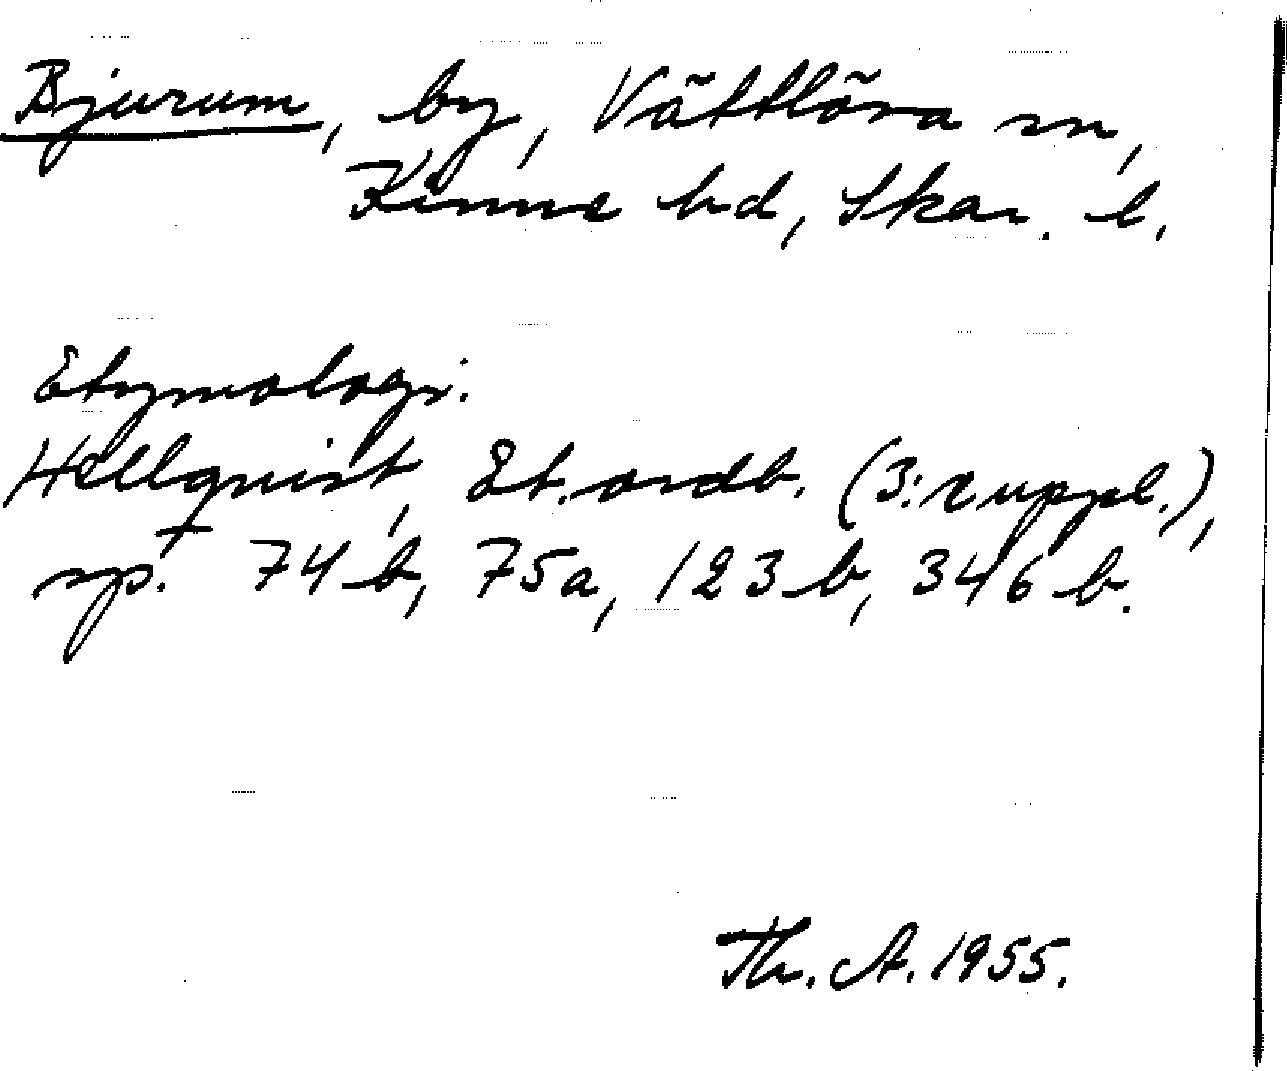 Bjurum, by, Vättlösa sn,
Kinne hd, Skar. l.
Etymologi.
Hellquist, Et. ordb. (3: e uppl.),
sp. 74 b, 75 a, 123 b, 346 b.
Th. A. 1955.